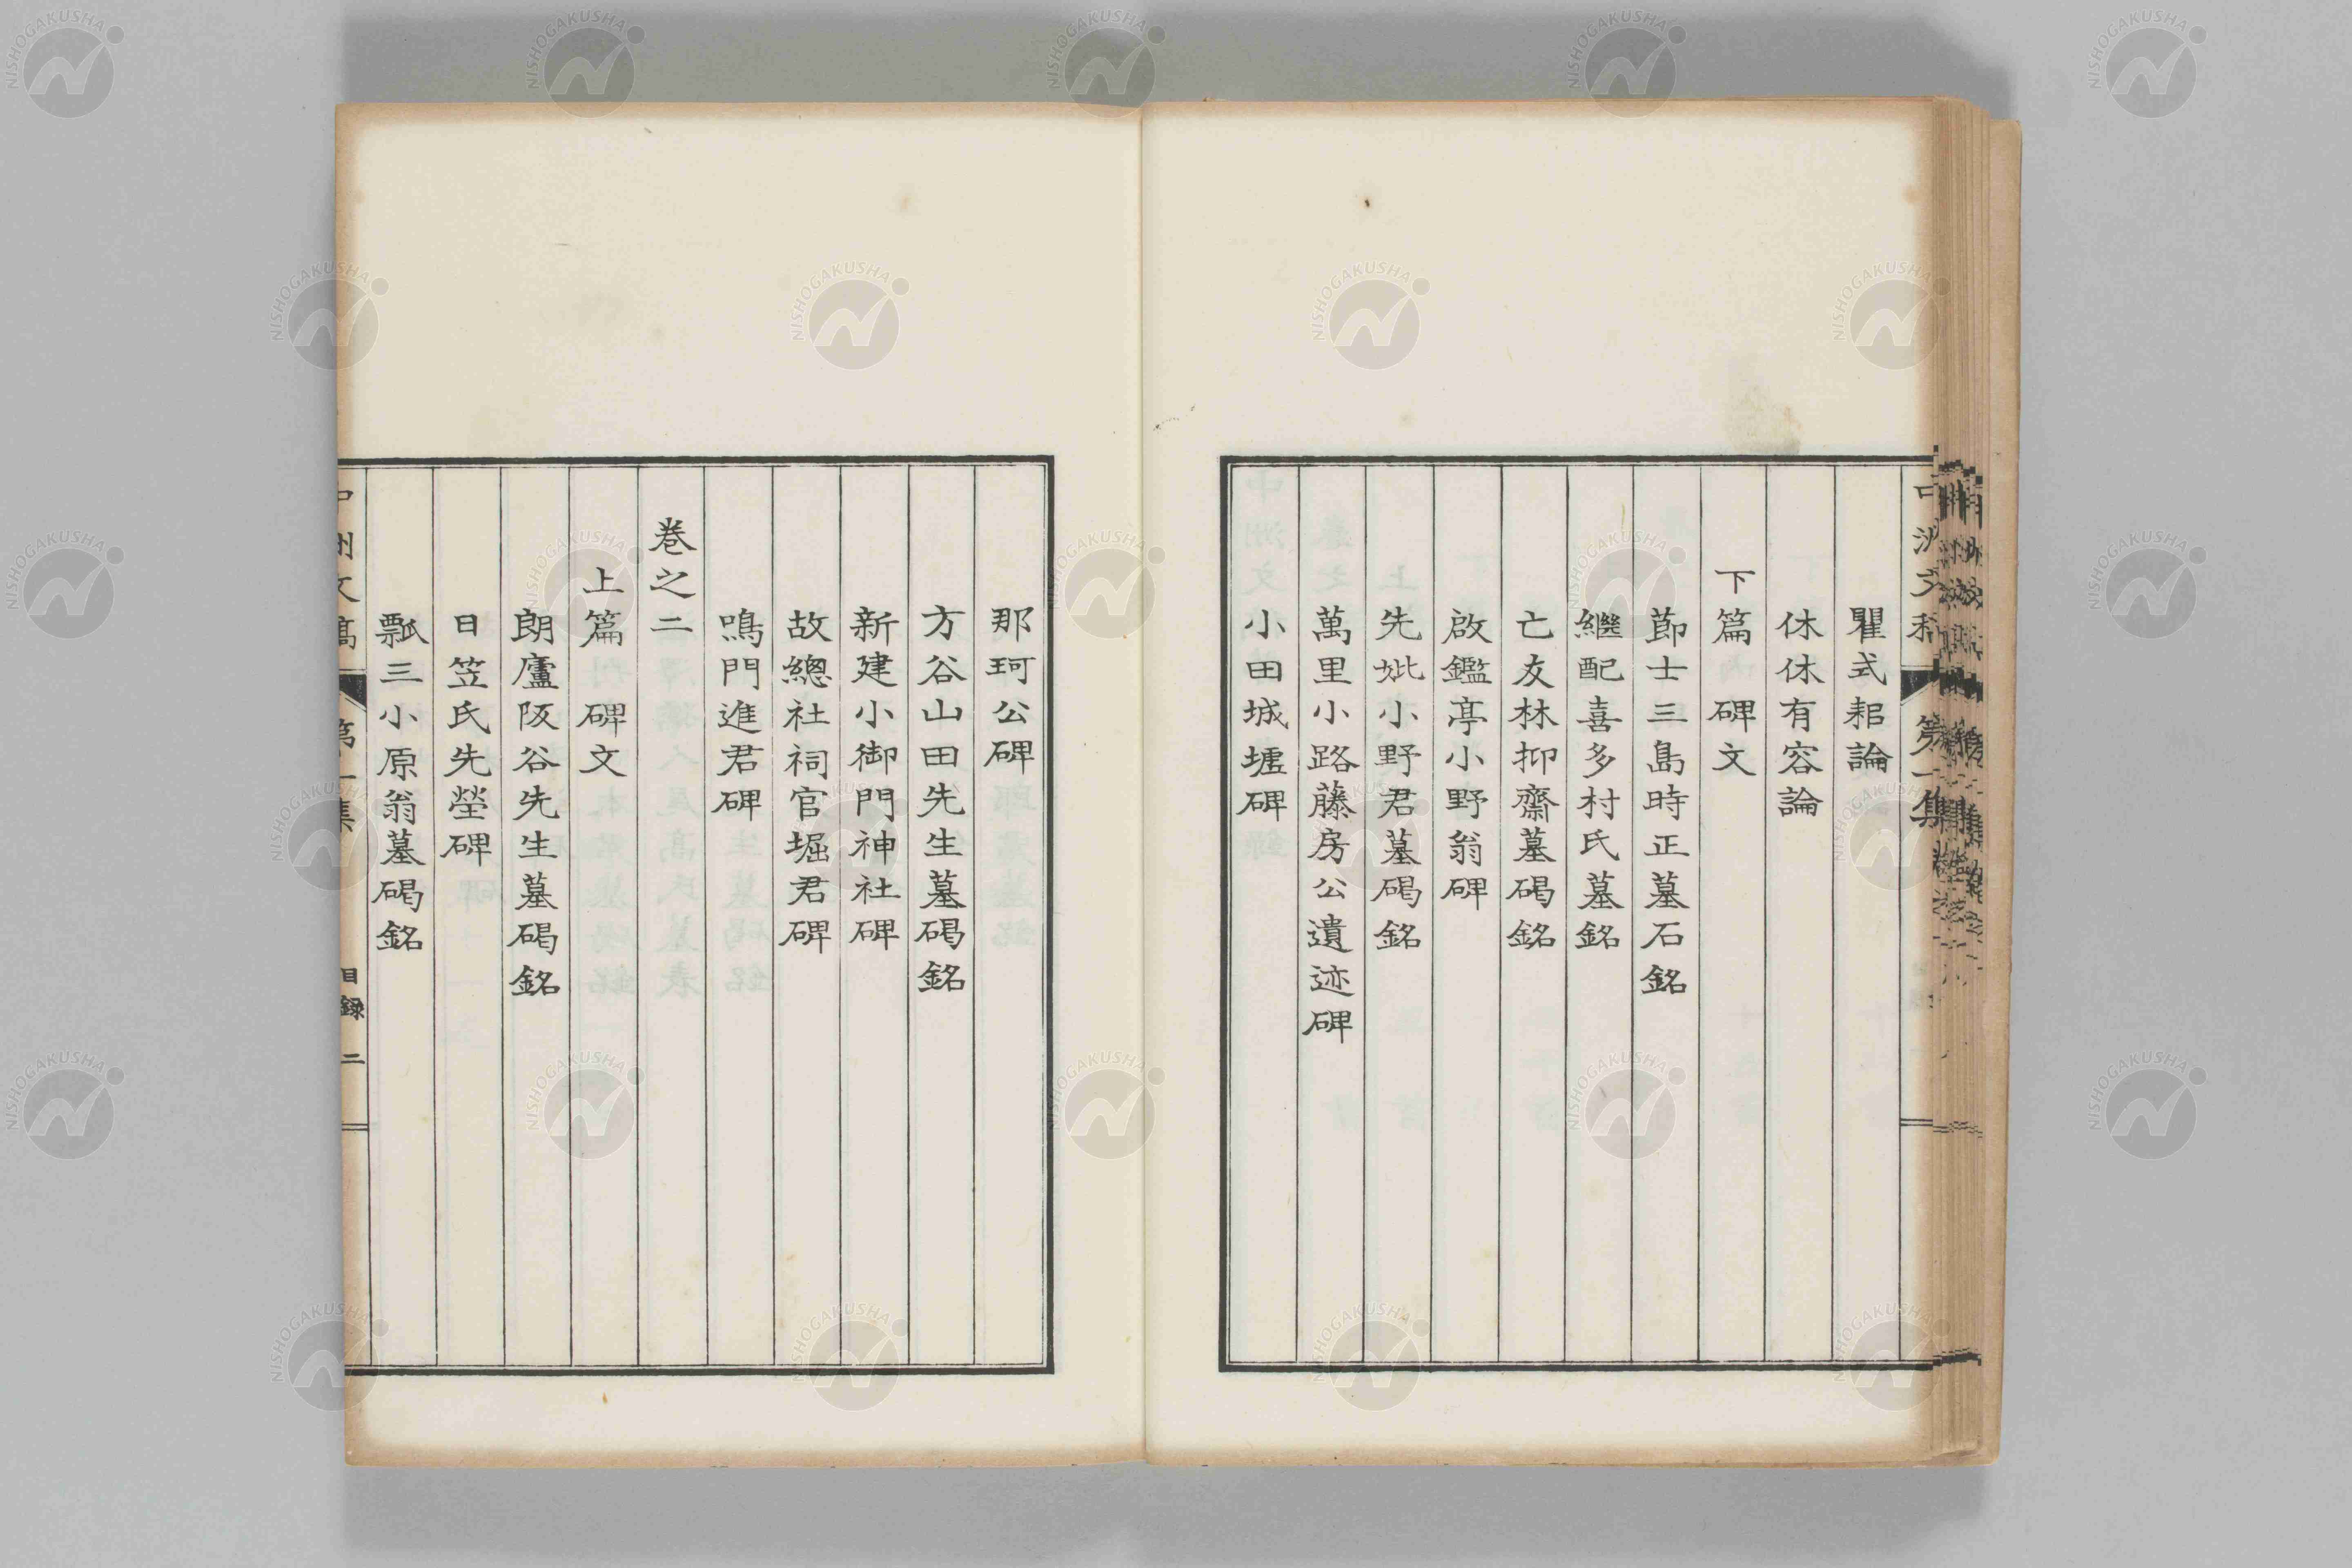 瞿式耜論
休休有容論
下篇 碑文
節士三島時正墓石銘
繼配喜多村氏墓銘
亡友林抑齋墓碣銘
啟鑑亭小野翁碑
先妣小野君墓碣銘
萬里小路藤房公遺迹碑
小田城墟碑
那珂公碑
方谷山田先生墓碣銘
新建小御門神社碑
故總社祠官堀君碑
鳴門進君碑
卷之二
上篇 碑文
朗廬阪谷先生墓碣銘
日笠氏先塋碑
瓢三小原翁墓碣銘
中洲文稿 第一集 目録 二
NISHOGAKUSHA